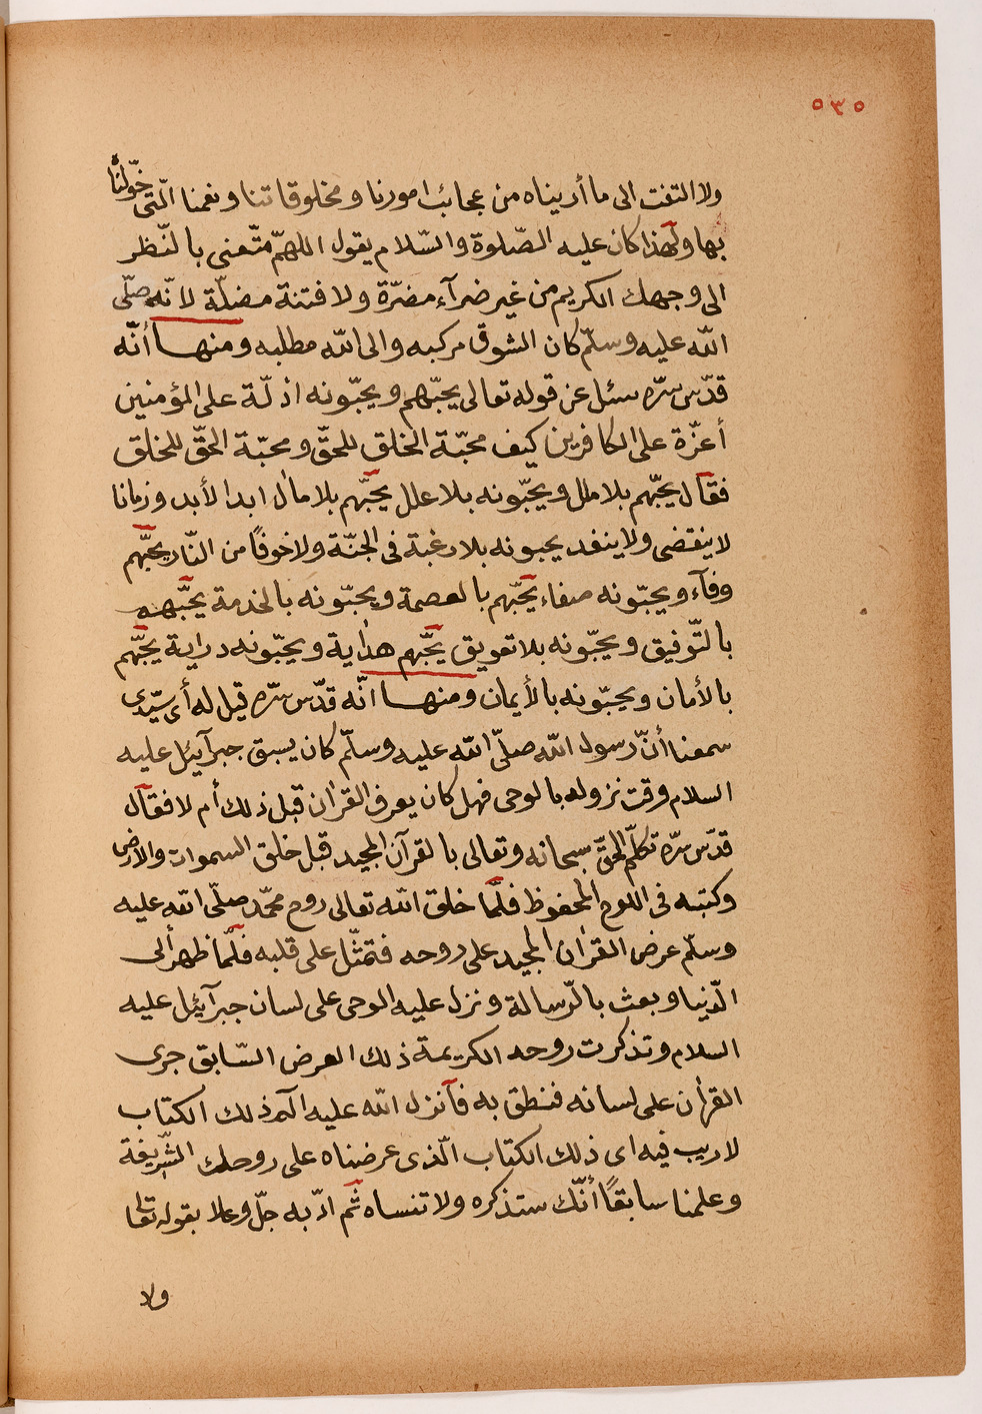 ٥٣٥
ولا التفت الى ما أريناه من عجائب امورنا ومخلوقاتنا ونعمنا الّتى خوّلناه
بها ولهذا كان عليه الصّلوة والسّلام يقول اللهمّ متّعنى بالنّظر
الى وجهك الكريم من غير ضرآء مضرّة ولا فتنة مضلّة لانّه صلّى
الله عليه وسلّم كان الشوق مركبه والى الله مطلبه ومنهـا أنّه
قدّس سرّه سئل عن قوله تعالى يحبّهم ويحبّونه اذلّة على المؤمنين
أعزّة على الكافرين كيف محبّة الخلق للحقّ ومحبّة الحقّ للخلق
فقال يحبّهم بلا ملل ويحبّونه بلا علل يحبّهم بلا مال ابدا لأبد وزمانا
لا ينقضى ولا ينفد يحبونه بلا رغبة فى الجنّة ولا خوفًا من النّار يحبّهم
وفآء ويحبّونه صفاء يحبّهم بالعصمة ويحبّونه بالخدمة يحبّهم
بالتّوفيق ويحبّونه بلا تعويق يحبّهم هداية ويحبّونه دراية يحبّهم
بالأمان ويحبّونه بالأيمان ومنهـا انّه قدّس سرّه قيل له أى سيّدى
سمعنا أنّ رسول الله صلّى الله عليه وسلّم كان يسبق جبرآئيل عليه
السلام وقت نزوله بالوحى فهل كان يعرف القرآن قبل ذلك أم لا فقال
قدّس سرّه تكلّم الحقّ سبحانه وتعالى بالقرآن المجيد قبل خلق السموات والارض
وكتبه فى اللوح المحفوظ فلمّا خلق الله تعالى روح محمّد صلّى الله عليه
وسلّم عرض القرآن المجيد على روحه فتمثّل على قلبه فلمّا ظهر ألى
الدّنيا وبعث بالرّسالة ونزل عليه الوحى على لسان جبرآئيل عليه
السلام وتذكرت روحه الكريمة ذلك العرض السّابق جرى
القرأن على لسانه فنطق به فآنزل الله عليه الٓمٓ ذلك الكتاب
لا ريب فيه اى ذلك الكتاب الّذى عرضناه على روحك الشّريفة
وعلمنا سابقًا أنّك ستذكره ولا تنساه ثم ادّبه جلّ وعلا بقوله تعالى
ولا